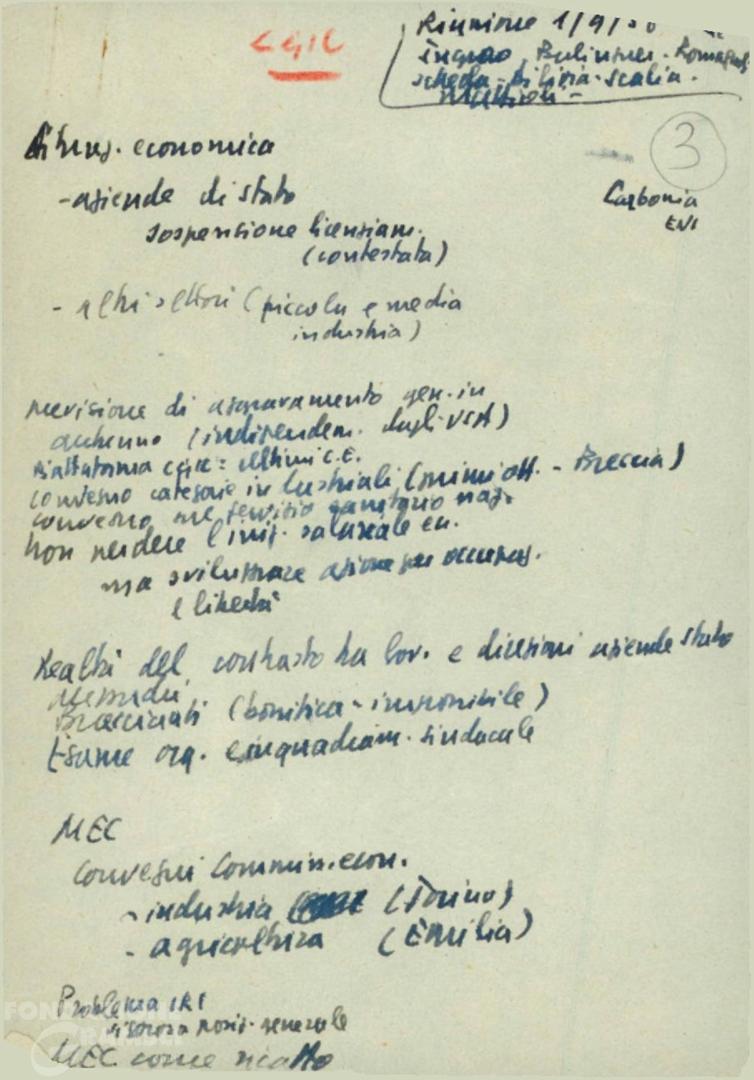 CGIL
Riunione 1/9/
Ingrao, Berlinguer - Romagnoli
scheda - Di Gioia - Scalia -
3
Situaz. economica
- aziende di stato
Carbonia
ENI
sospensione licenziam.
(contestata)
- altri settori (piccola e media
industria)
previsione di aggravamento gen. in
autunno (indipendem. dagli USA)
piattaforma CGIL = ultimi C.E.
convegno categorie industriali (primi ott. - Brescia)
convegno per servizio sanitario naz.
non perdere l'iniz. salariale
ma sviluppare azione per occupaz.
e libertà
Realtà del contrasto tra lav. e direzioni aziende stato
Mezzadri
Braccianti (bonifica - imponibile)
Esame org. e inquadram. sindacale
MEC
Convegni Commiss. econ.
- industria (Torino)
- agricoltura (Emilia)
Problema IRI
posiz. generale
MEC come ricatto
FONDAZIONE
GRAMSCI